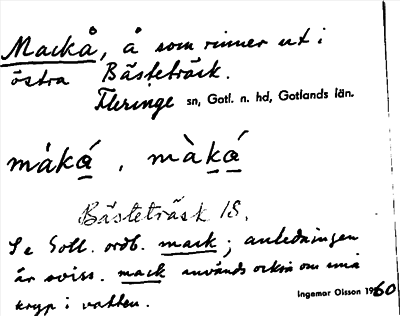 Mackå, å som rinner ut i
östra Bästeträsk.
Fleringe sn, Gotl. n. hd, Gotlands län.
måkǻ, màkǻ
Bästeträsk 1S.
Se Gotl. ordb. mack; anledningen
är oviss. mack används också om små
kryp i vatten.
Ingemar Olsson 1960